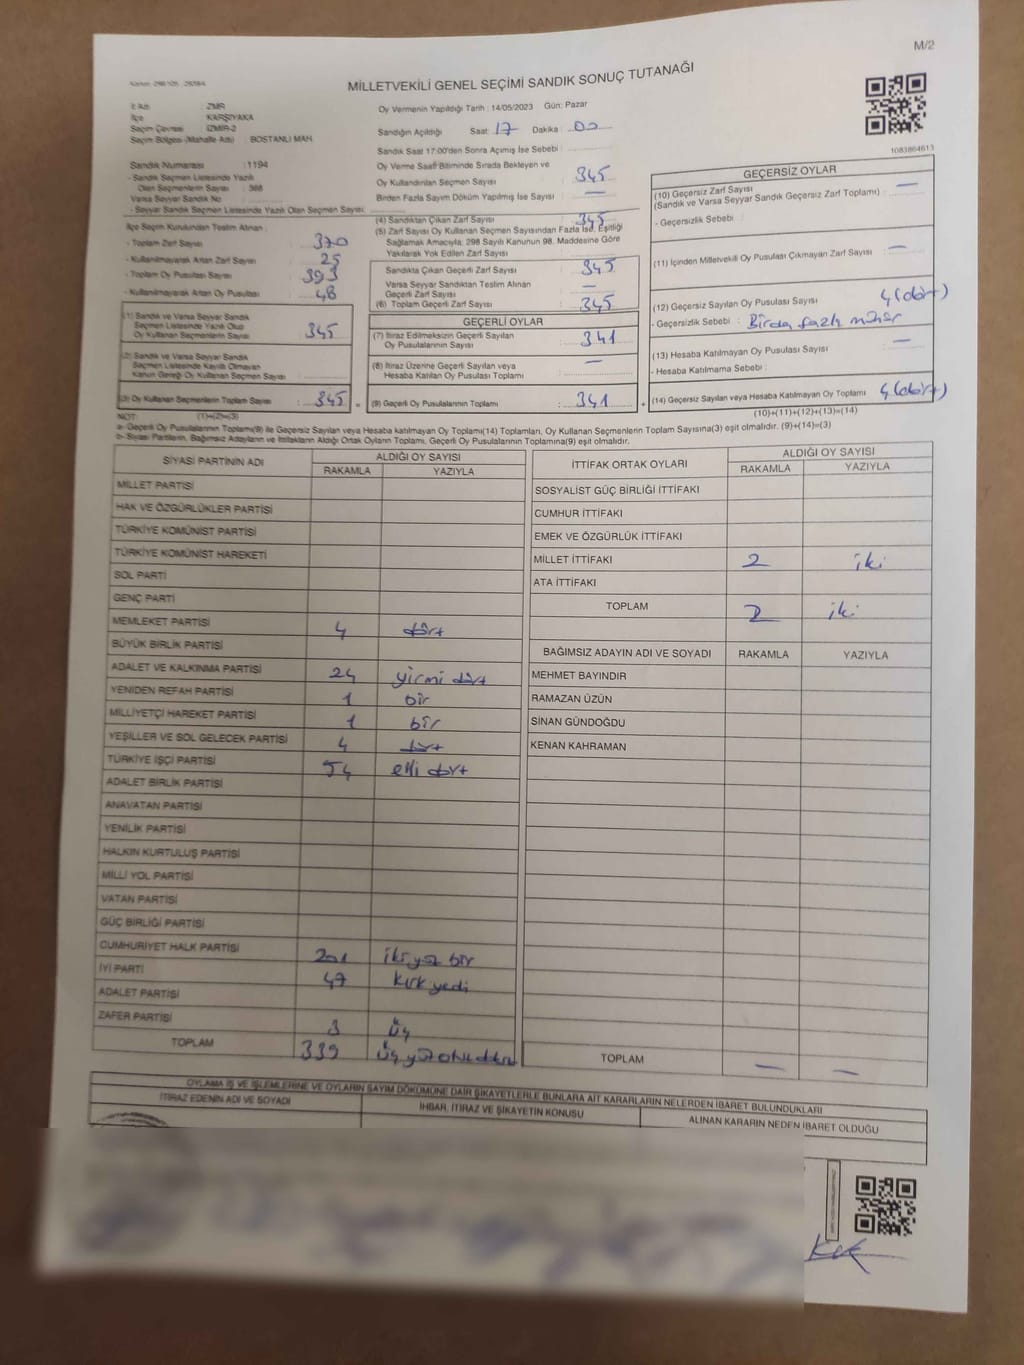 M/2
MİLLETVEKİLİ GENEL SEÇİMİ SANDIK SONUÇ TUTANAĞI
İl Adı : İZMİR
İlçe KARŞIYAKA
Seçim Çevresi İZMİR-2
Seçim Bölgesi (Mahalle Adı) : BOSTANLI MAH
Sandık Numarası : 1194
- Sandık Seçmen Listesinde Yazılı
Olan Seçmenlerin Sayısı : 388
Varsa Seyyar Sandık No
- Seyyar Sandık Seçmen Listesinde Yazılı Olan Seçmen Sayısı :
İlçe Seçim Kurulundan Teslim Alınan :
- Toplam Zarf Sayısı : 370
- Kullanılmayarak Artan Zarf Sayısı : 25
- Toplam Oy Pusulası Sayısı : 393
- Kullanılmayarak Artan Oy Pusulası : 48
(1) Sandık ve Varsa Seyyar Sandık
Seçmen Listesinde Yazılı Olup
Oy Kullanan Seçmenlerin Sayısı : 345
(2) Sandık ve Varsa Seyyar Sandık
Seçmen Listesinde Kayıtlı Olmayan
Kanun Gereği Oy Kullanan Seçmen Sayısı :
(3) Oy Kullanan Seçmenlerin Toplam Sayısı : 345 =
Oy Vermenin Yapıldığı Tarih : 14/05/2023 Gün: Pazar
Sandığın Açıldığı Saat: 17 Dakika : 00
Sandık Saat 17:00'den Sonra Açılmış İse Sebebi :
Oy Verme Saati Bitiminde Sırada Bekleyen ve
Oy Kullandırılan Seçmen Sayısı : 345
Birden Fazla Sayım Döküm Yapılmış İse Sayısı : —
(4) Sandıktan Çıkan Zarf Sayısı : 345
(5) Zarf Sayısı Oy Kullanan Seçmen Sayısından Fazla İse, Eşitliği
Sağlamak Amacıyla; 298 Sayılı Kanunun 98. Maddesine Göre
Yakılarak Yok Edilen Zarf Sayısı :
Sandıkta Çıkan Geçerli Zarf Sayısı : 345
Varsa Seyyar Sandıktan Teslim Alınan
Geçerli Zarf Sayısı : —
(6) Toplam Geçerli Zarf Sayısı : 345
GEÇERLİ OYLAR
(7) İtiraz Edilmeksizin Geçerli Sayılan
Oy Pusulalarının Sayısı : 341
(8) İtiraz Üzerine Geçerli Sayılan veya
Hesaba Katılan Oy Pusulası Toplamı : —
(9) Geçerli Oy Pusulalarının Toplamı : 341 +
1083864613
GEÇERSİZ OYLAR
(10) Geçersiz Zarf Sayısı : —
(Sandık ve Varsa Seyyar Sandık Geçersiz Zarf Toplamı)
- Geçersizlik Sebebi :
(11) İçinden Milletvekili Oy Pusulası Çıkmayan Zarf Sayısı : —
(12) Geçersiz Sayılan Oy Pusulası Sayısı : 4 (dört)
- Geçersizlik Sebebi : Birden fazla mühür
(13) Hesaba Katılmayan Oy Pusulası Sayısı : —
- Hesaba Katılmama Sebebi :
(14) Geçersiz Sayılan veya Hesaba Katılmayan Oy Toplamı : 4 (dört)
NOT: (1)+(2)=(3)
(10)+(11)+(12)+(13)=(14)
a- Geçerli Oy Pusulalarının Toplamı(9) ile Geçersiz Sayılan veya Hesaba katılmayan Oy Toplamı(14) Toplamları, Oy Kullanan Seçmenlerin Toplam Sayısına(3) eşit olmalıdır. (9)+(14)=(3)
b- Siyasi Partilerin, Bağımsız Adayların ve İttifakların Aldığı Ortak Oyların Toplamı, Geçerli Oy Pusulalarının Toplamına(9) eşit olmalıdır.
SİYASİ PARTİNİN ADI ALDIĞI OY SAYISI
RAKAMLA YAZIYLA
MİLLET PARTİSİ
HAK VE ÖZGÜRLÜKLER PARTİSİ
TÜRKİYE KOMÜNİST PARTİSİ
TÜRKİYE KOMÜNİST HAREKETİ
SOL PARTİ
GENÇ PARTİ
MEMLEKET PARTİSİ 4 dört
BÜYÜK BİRLİK PARTİSİ
ADALET VE KALKINMA PARTİSİ 24 yirmi dört
YENİDEN REFAH PARTİSİ 1 bir
MİLLİYETÇİ HAREKET PARTİSİ 1 bir
YEŞİLLER VE SOL GELECEK PARTİSİ 4 dört
TÜRKİYE İŞÇİ PARTİSİ 54 elli dört
ADALET BİRLİK PARTİSİ
ANAVATAN PARTİSİ
YENİLİK PARTİSİ
HALKIN KURTULUŞ PARTİSİ
MİLLİ YOL PARTİSİ
VATAN PARTİSİ
GÜÇ BİRLİĞİ PARTİSİ
CUMHURİYET HALK PARTİSİ 201 iki yüz bir
İYİ PARTİ 47 kırk yedi
ADALET PARTİSİ
ZAFER PARTİSİ 3 üç
TOPLAM 339 üç yüz otuz dokuz
İTTİFAK ORTAK OYLARI ALDIĞI OY SAYISI
RAKAMLA YAZIYLA
SOSYALİST GÜÇ BİRLİĞİ İTTİFAKI
CUMHUR İTTİFAKI
EMEK VE ÖZGÜRLÜK İTTİFAKI
MİLLET İTTİFAKI 2 iki
ATA İTTİFAKI
TOPLAM 2 iki
BAĞIMSIZ ADAYIN ADI VE SOYADI RAKAMLA YAZIYLA
MEHMET BAYINDIR
RAMAZAN ÜZÜN
SİNAN GÜNDOĞDU
KENAN KAHRAMAN
TOPLAM — —
OYLAMA İŞ VE İŞLEMLERİNE VE OYLARIN SAYIM DÖKÜMÜNE DAİR ŞİKAYETLERLE BUNLARA AİT KARARLARIN NELERDEN İBARET BULUNDUKLARI
İTİRAZ EDENİN ADI VE SOYADI İHBAR, İTİRAZ VE ŞİKAYETİN KONUSU ALINAN KARARIN NEDEN İBARET OLDUĞU